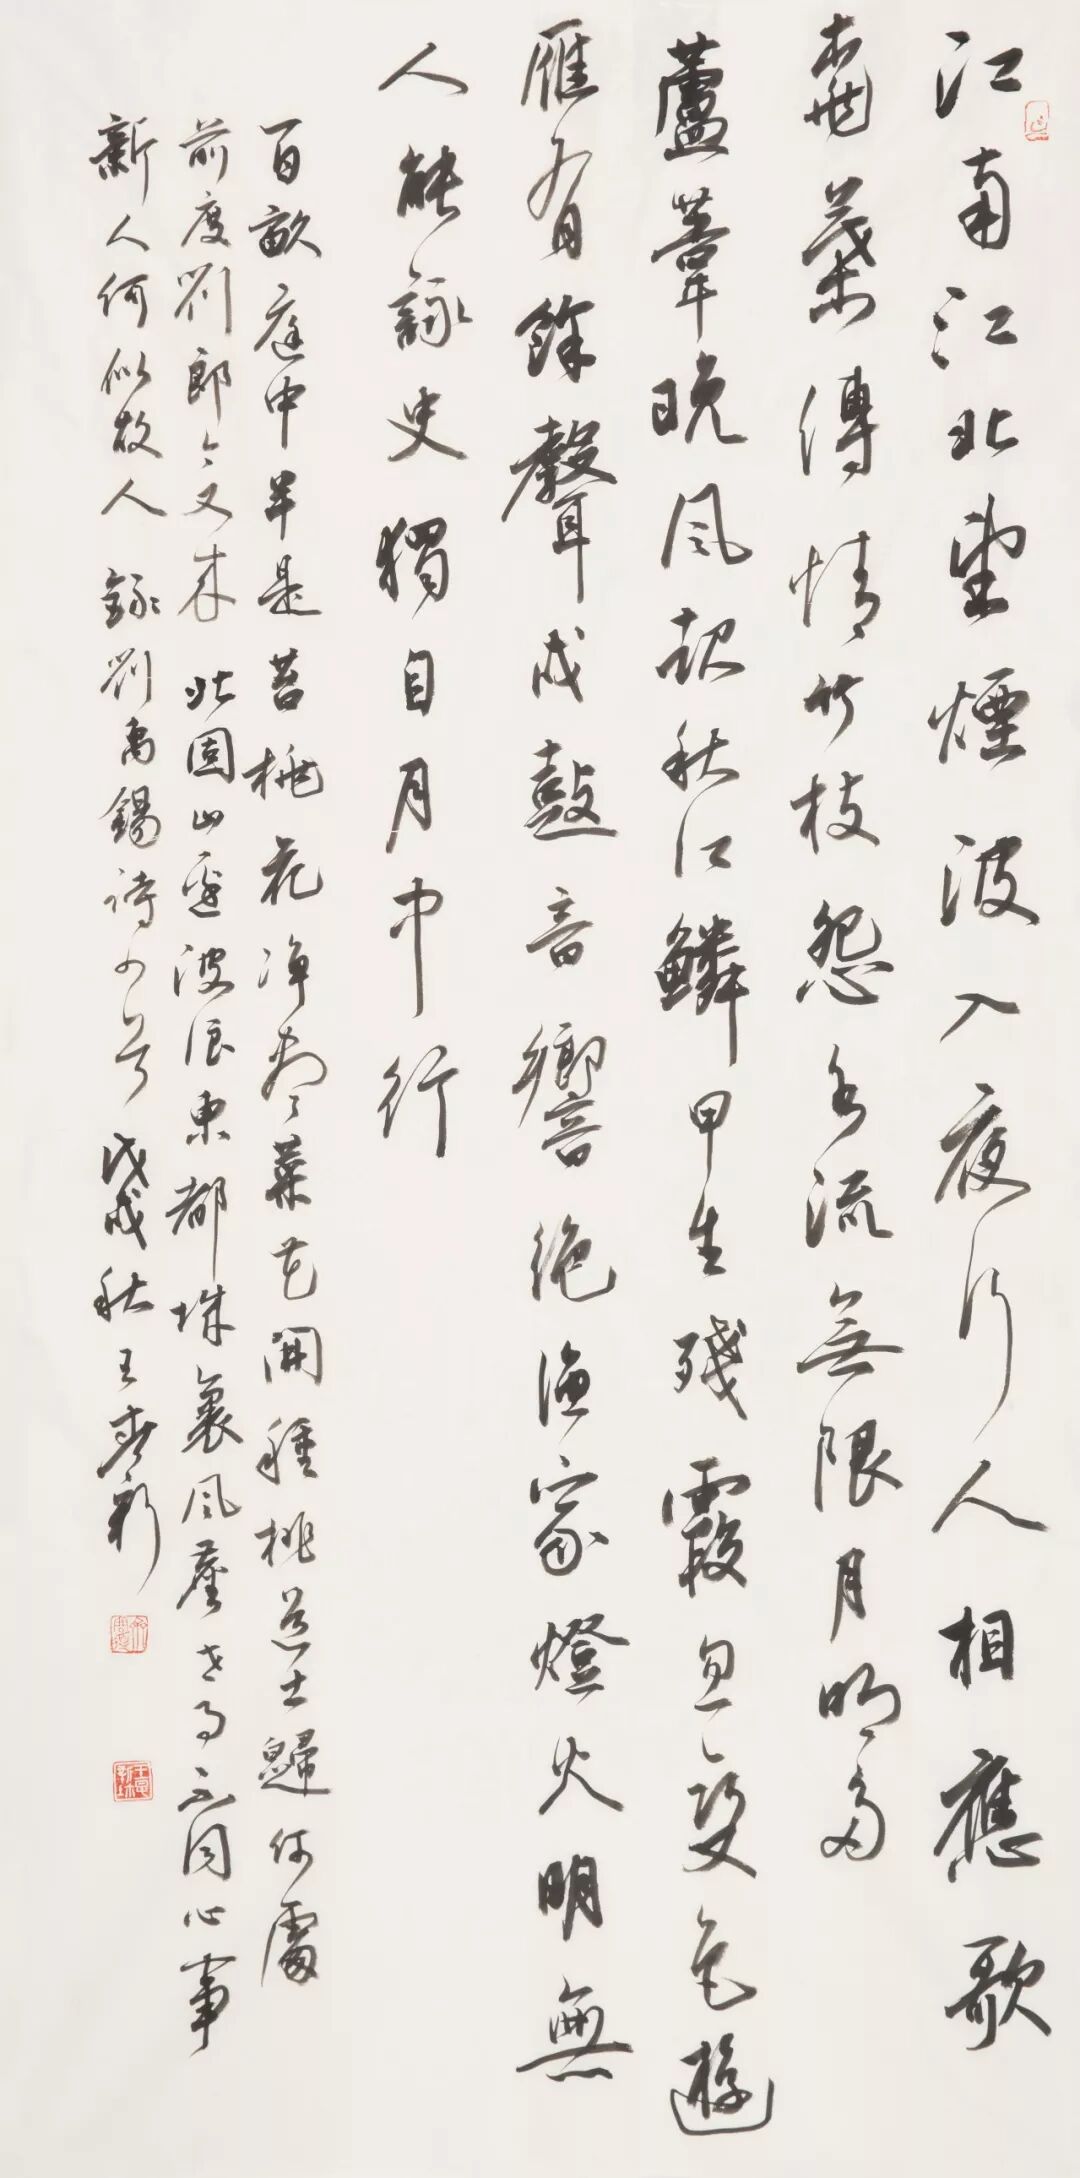 江南江北望煙波入夜行人相應歌
桃葉傳情竹枝怨水流無限月明多
蘆葦晚風起秋江鱗甲生殘霞忽變色遊
雁有餘聲戍鼓音響絕漁家燈火明無
人能詠史獨自月中行
百畝庭中半是苔桃花淨盡菜花開種桃道士歸何處
前度劉郎今又來 北固山邊波浪東都城裏風塵世事不同心事
新人何似故人 錄劉禹錫詩四首 戊戌秋王新